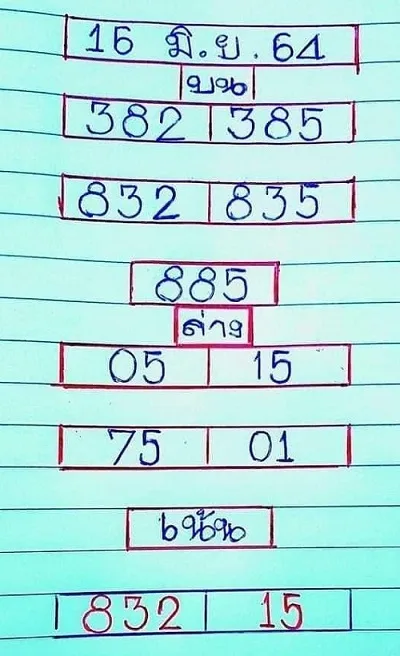 16 มิ.ย.64
บน
382 385
832 835
885
ล่าง
05 15
75 01
เน้น
832 15